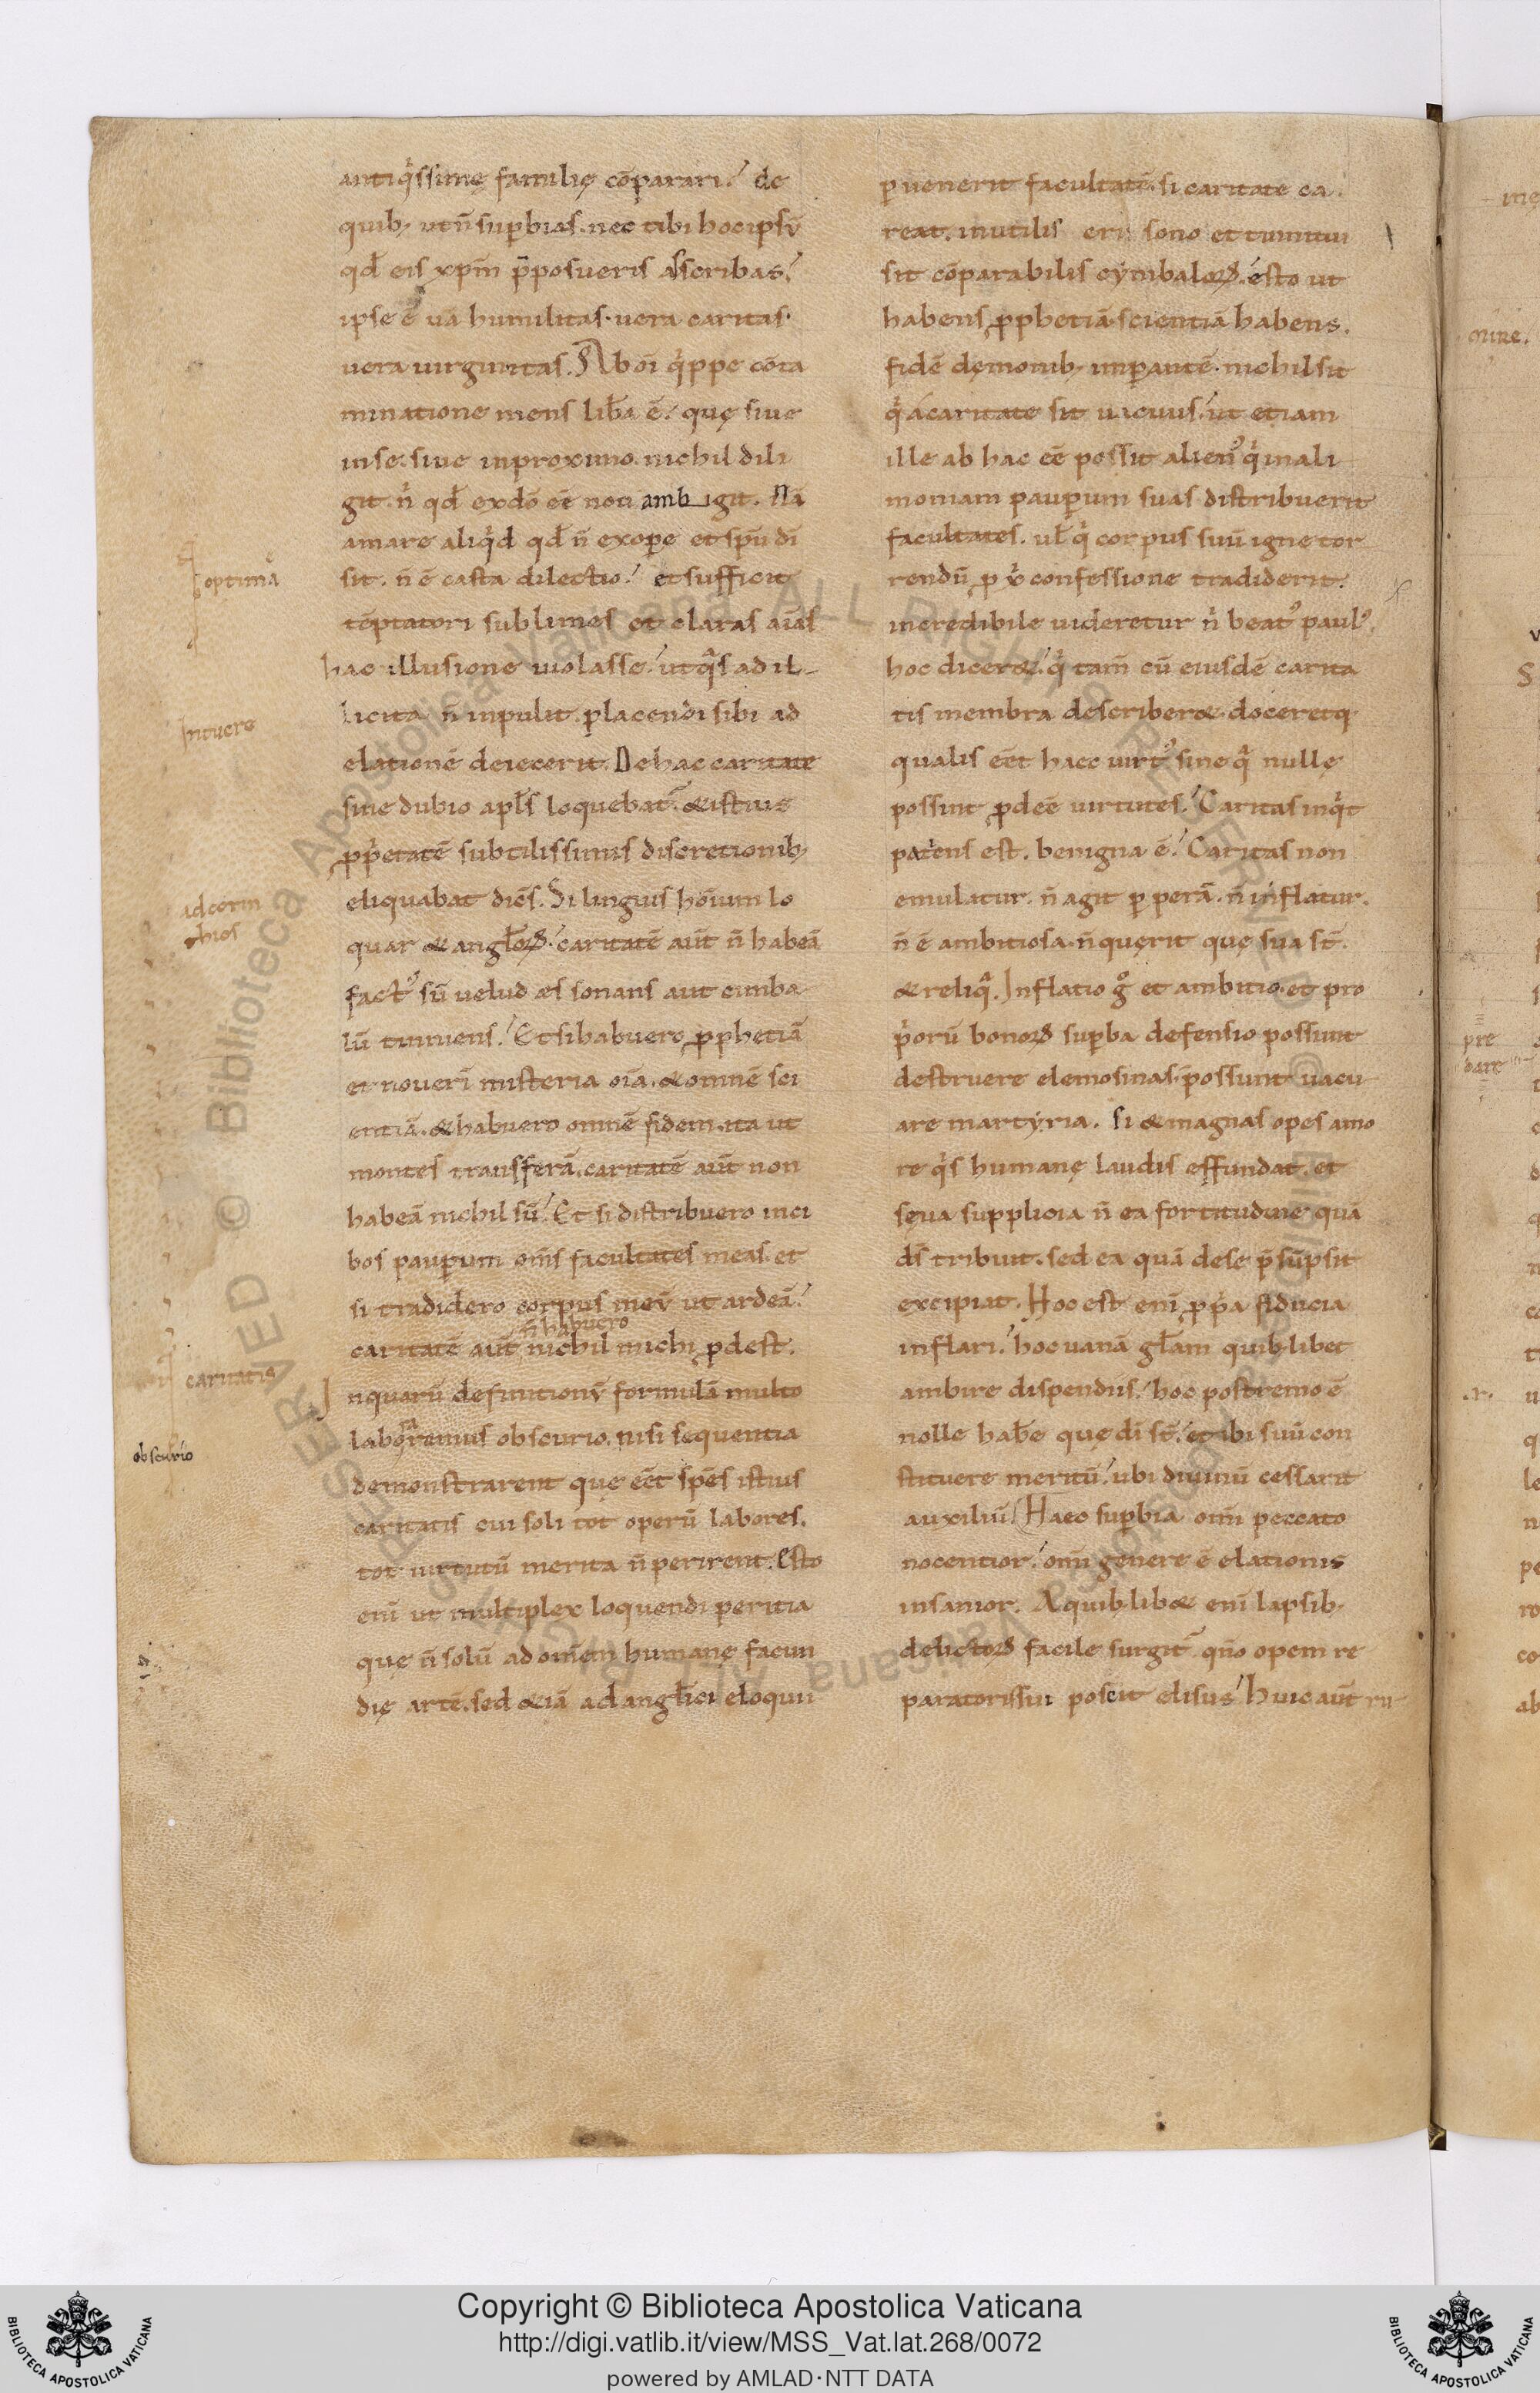 antiq̇ssimę familię cōparari. de
quib; ut n̄ suꝑbias. nec tibi hoc ipsū
qđ eis xp̄m p̄posueris asscribas.
ipse ē uā humilitas. uera caritas.
uera uirginitas. Ab oī q̇ppe cōta
minatione mens libā ē. quę siue
in se. siue in proximo. nichil dili
git. n̄ qđ ex dō eē non ambigit. Nā
amare aliq̇d qđ n̄ ex oꝑe et sp̄u dī
sit. n̄ ē casta dilectio. et sufficit
tēptatori sublimes et claras aīas
hac illusione uiolasse. ut q̊s ad il-
licita n̄ inpulit. placendi sibi ad
elationē deiecerit. De hac caritate
sine dubio apl̄s loquebat̄. & istius
ꝓṗetatē subtilissimis discretionib;
eliquabat dicēs. Si linguis hoīum lo
quar & angl̄oꝝ. caritatē aūt n̄ habeā
factꝰ sū uelud æs sonans aut cimba
lū tinniens. Et si habuero ꝓphetiā
et nouerī misteria oīa. & omnē sci
entiā. & habuero omnē fidem. ita ut
montes transferā. caritatē aūt non
habeā nichil sū. Et si distribuero in ci
bos pauꝑum om̄s facultates meas. et
si tradidero corpus meū ut ardeā.
n̄ habuero
caritatē aūt nichil michi ꝓdest.
Inquarū definitionū formulā multo
laboraremus obscurio. nisi sequentia
demonstrarent que eēt spēs istius
caritatis cui soli tot operū labores.
tot uirtutū merita n̄ perirent. Esto
enī ut multiplex loquendi peritia
quę n̄ solū ad omēm humanę facun
dię artē. sed &iā ad angl̄ici eloquii
optimā
Intuere
ad corin
thios
caritatis
obscurio
ꝑuenerit facultatē. si caritate ca
reat. inutilis eris sono et tinnitui
sit cōparabilis cymbaloꝝ. esto ut
habens ꝓphetiā. scientiā habens.
fidē dęmonib; imꝑantē. nichil sit
q̇ a caritate sit uacuus. ut etiam
ille ab hac eē possit alienꝰ q̇ in ali
moniam pauꝑum suas distribuerit
facultates. uł q̇ corpus suū igne tor
rendū ꝓ xp̄i confessione tradiderit.
incredibile uideretur n̄ beatꝰ paulꝰ
hoc dicer&. q̇ tam̄ cū eiusdē carita
tis membra describer&. doceretq;
qualis eēt haec uirtꝰ sine q̊ nullę
possint ꝓdeē uirtutes. Caritas inq̇t
patiens est. benigna ē. Caritas non
emulatur. n̄ agit ꝑperā. n̄ inflatur.
n̄ ē ambitiosa. n̄ quęrit quę sua st̄.
& reliq̊. Inflatio g̊ et ambitio. et pro
ṗorū bonoꝝ suꝑba defensio possunt
destruere elemosinas. possunt uacu
are martyria. Si & magnas opes amo
re q̇s humanę laudis effundat. et
sęua supplicia n̄ ea fortitudine quā
ds̄ tribuit. sed ea quā de se p̄sūpsit
excipiat. Hoc est enī ꝓṗa fiducia
inflari. hoc uanā gl̄am quib;libet
ambire dispendiis. hoc postremo ē
nolle hab̄e quę dī st̄. et ibi suū con
stituere meritū. ubi diuinū cessarit
auxiliū. Haec suꝑbia om̄i peccato
nocentior. om̄i genere ē elationis
insanior. A quib;lib& enī lapsib;
delictoꝝ facile surgit̄ qn̄o opem re
paratoris sui poscit elisus. Huic aūt ru-
Copyright © Biblioteca Apostolica Vaticana
http://digi.vatlib.it/view/MSS_Vat.lat.268/0072
powered by AMLAD·NTT DATA
BIBLIOTECA APOSTOLICA VATICANA
BIBLIOTECA APOSTOLICA VATICANA